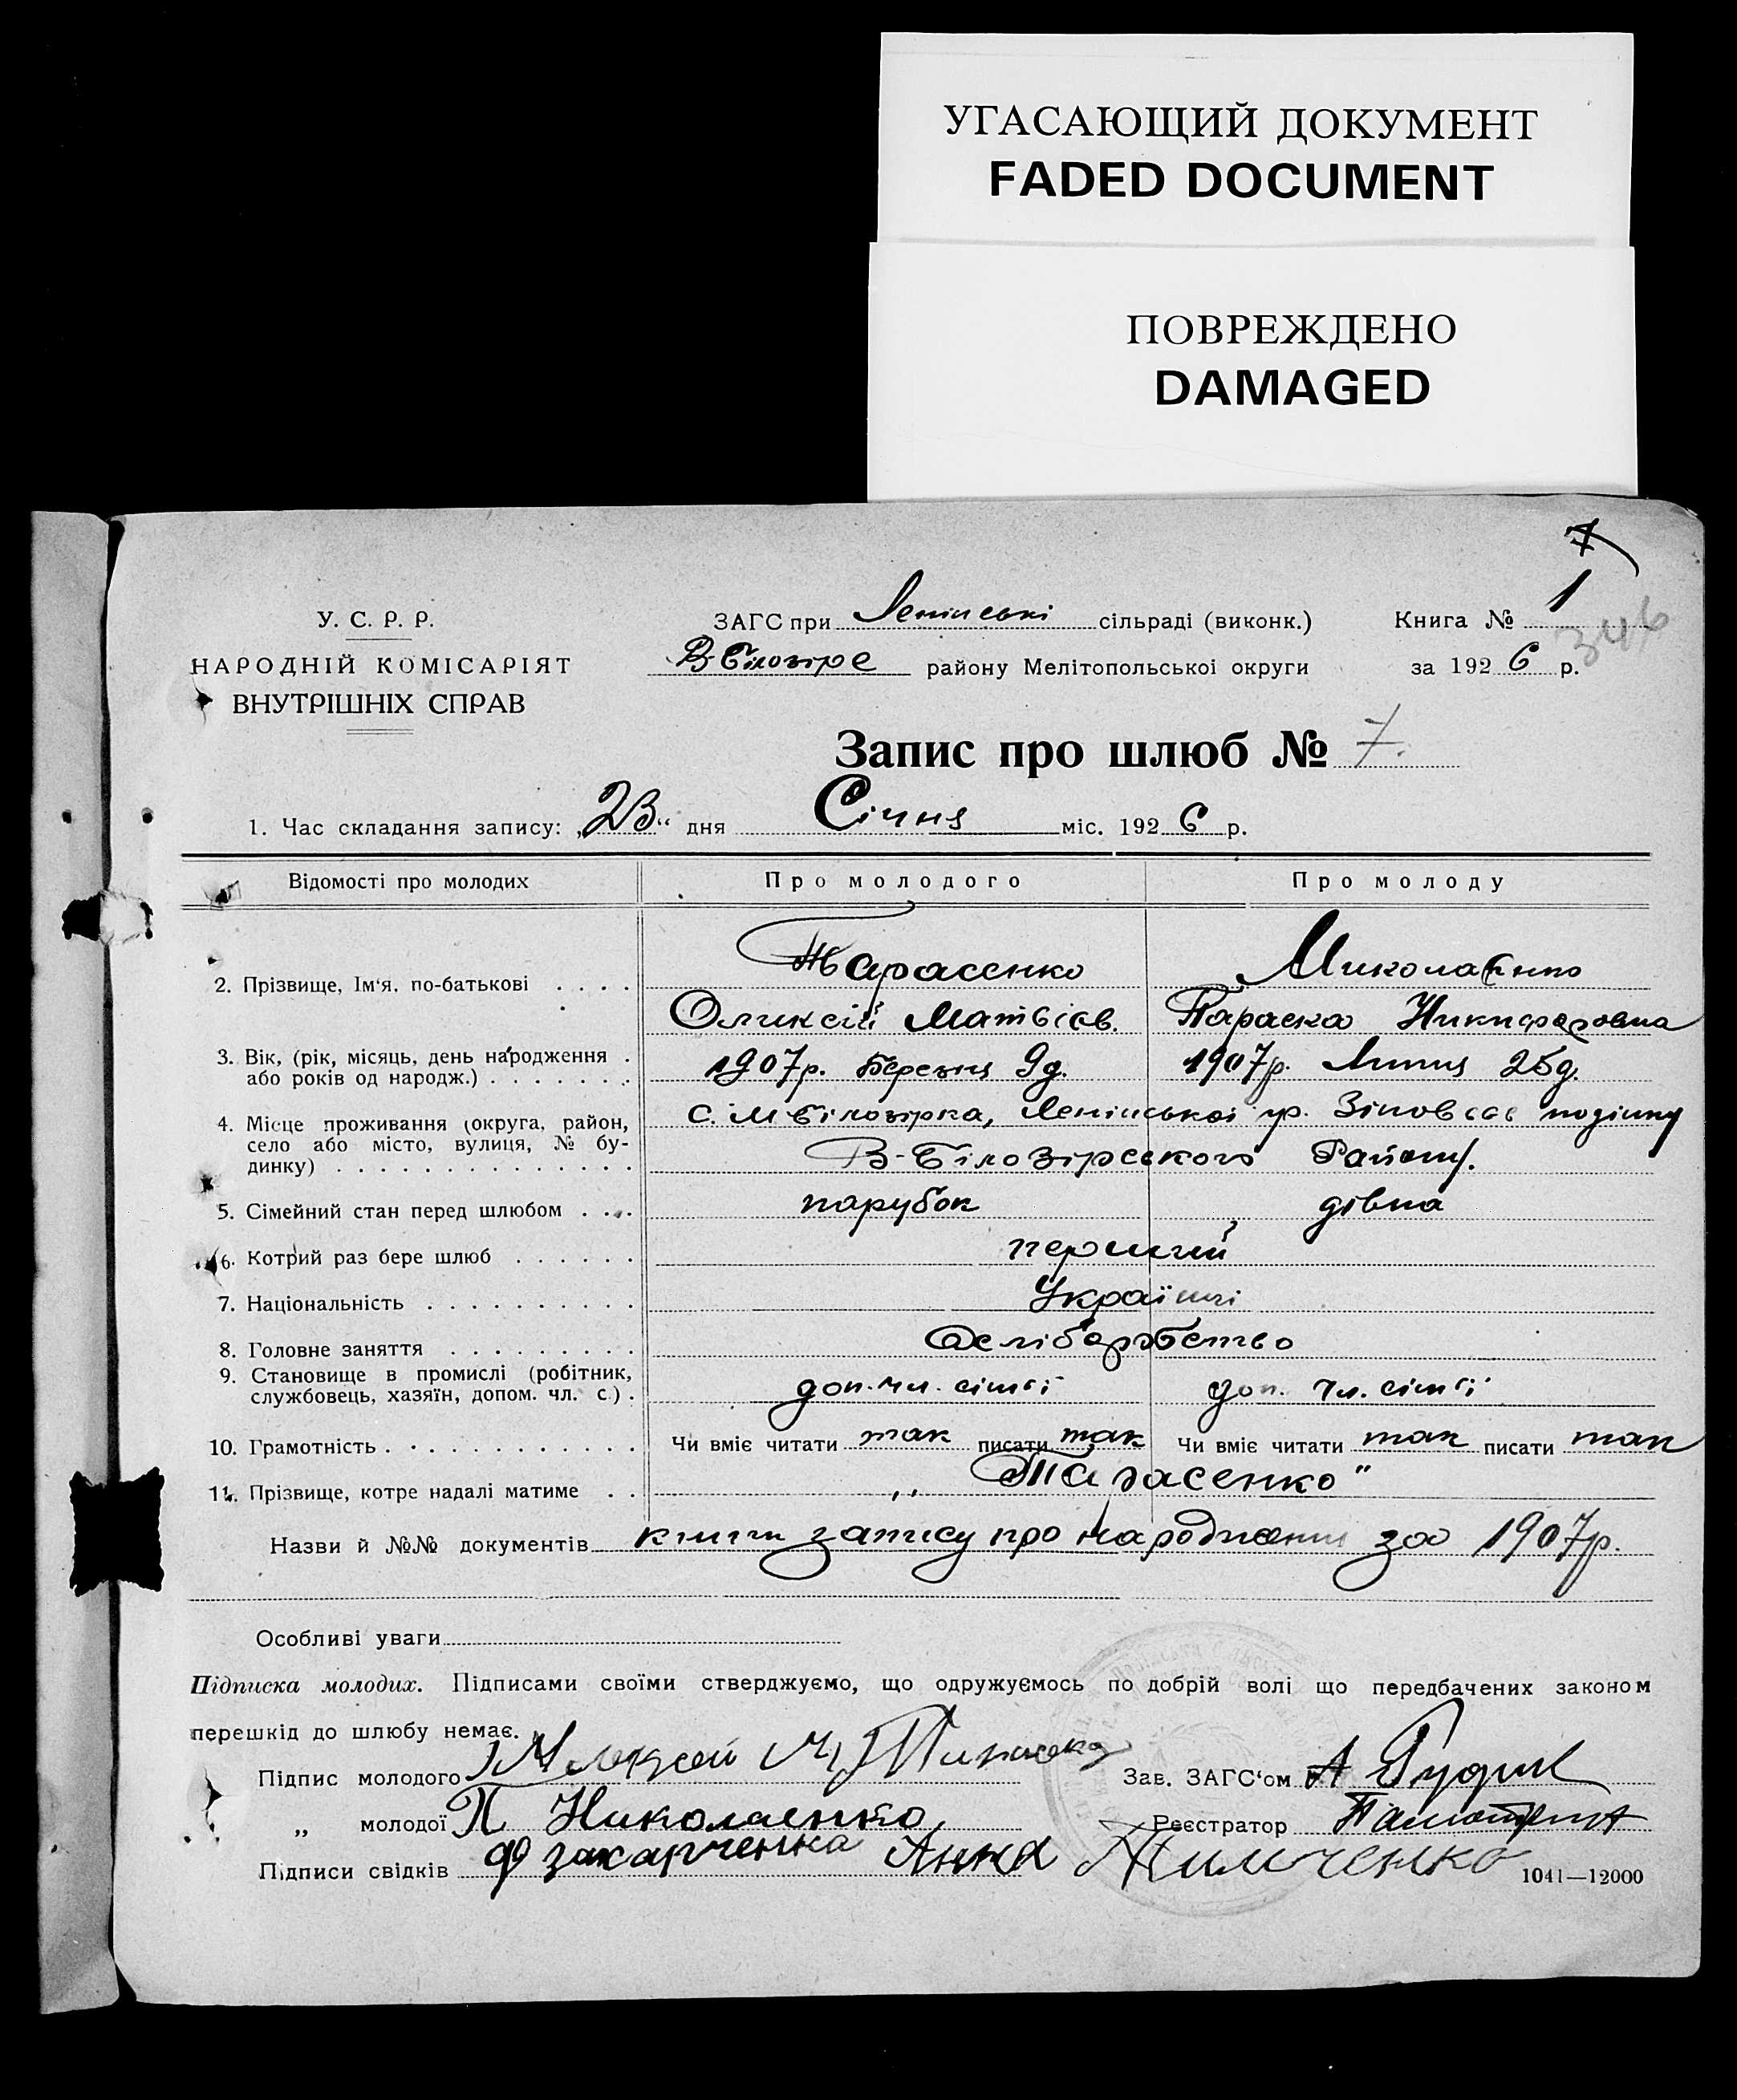 УГАСАЮЩИЙ ДОКУМЕНТ
FADED DOCUMENT
ПОВРЕЖДЕНО
DAMAGED
7
У. С. Р. Р.
НАРОДНІЙ КОМІСАРІЯТ
ВНУТРІШНІХ СПРАВ
ЗАГС при Ленінські сільраді (виконк.)
В-Білозірс району Мелітопольської округи
Книга № 1
346
за 1926 р.
Запис про шлюб № 7.
1. Час складання запису: „23“ дня Січня міс. 1926 р.
Відомості про молодих Про молодого Про молоду
2. Прізвище, Ім'я, по-батькові . . . . Тарасенко Миколаєнко
Оликсій Матвієв. Параска Никифоровна
3. Вік, (рік, місяць, день народження . або років од народж.) . . . . . . . 1907р. Березня 9д. 1907р. Липня 25д.
4. Місце проживання (округа, район, с. М Білозірка, Ленінської
село або місто, вулиця, № бу- В-Білозірського Району.
динку) . . . . . . . . . . . . . .
5. Сімейний стан перед шлюбом . . . парубок дівка
6. Котрий раз бере шлюб . . . . . . перший
7. Національність . . . . . . . . . . Українці
8. Головне заняття . . . . . . . . .
9. Становище в промислі (робітник,
службовець, хазяїн, допом. чл. с.) . доп. чл. сімїї доп. чл. сімїї
10. Грамотність . . . . . . . . . . . Чи вміє читати так писати так Чи вміє читати так писати так
11. Прізвище, котре надалі матиме . . „Тарасенко"
Назви й №№ документів книги запису про народження за 1907р.
Особливі уваги
Підписка молодих. Підписами своїми стверджуємо, що одружуємось по добрій волі що передбачених законом
перешкід до шлюбу немає.
Підпис молодого
Зав. ЗАГС'ом А Рудик
„ молодої П Николаенко
Реєстратор
Підписи свідків Ф Захарченка Анна Тимченко
1041—12000